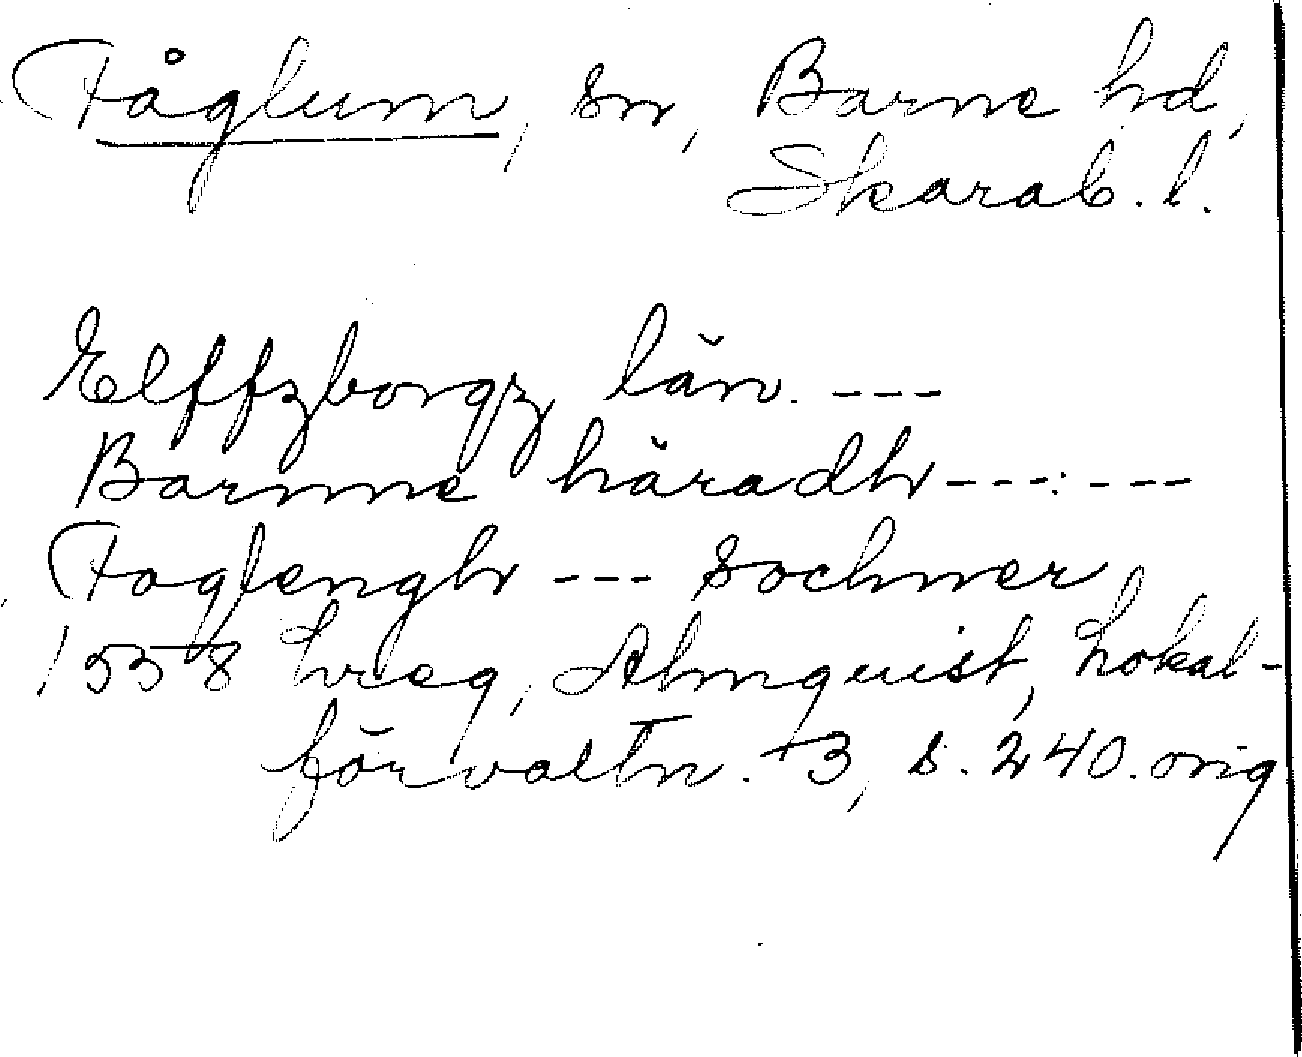 Fåglum, sn, Barne hd,
Skarab. l.
Elffzborgz län. ---
Barnne häradh ---:---
Foglengh --- sochner
1558 hreg, Almquist, Lokal-
förvaltn. 3, s. 240. orig